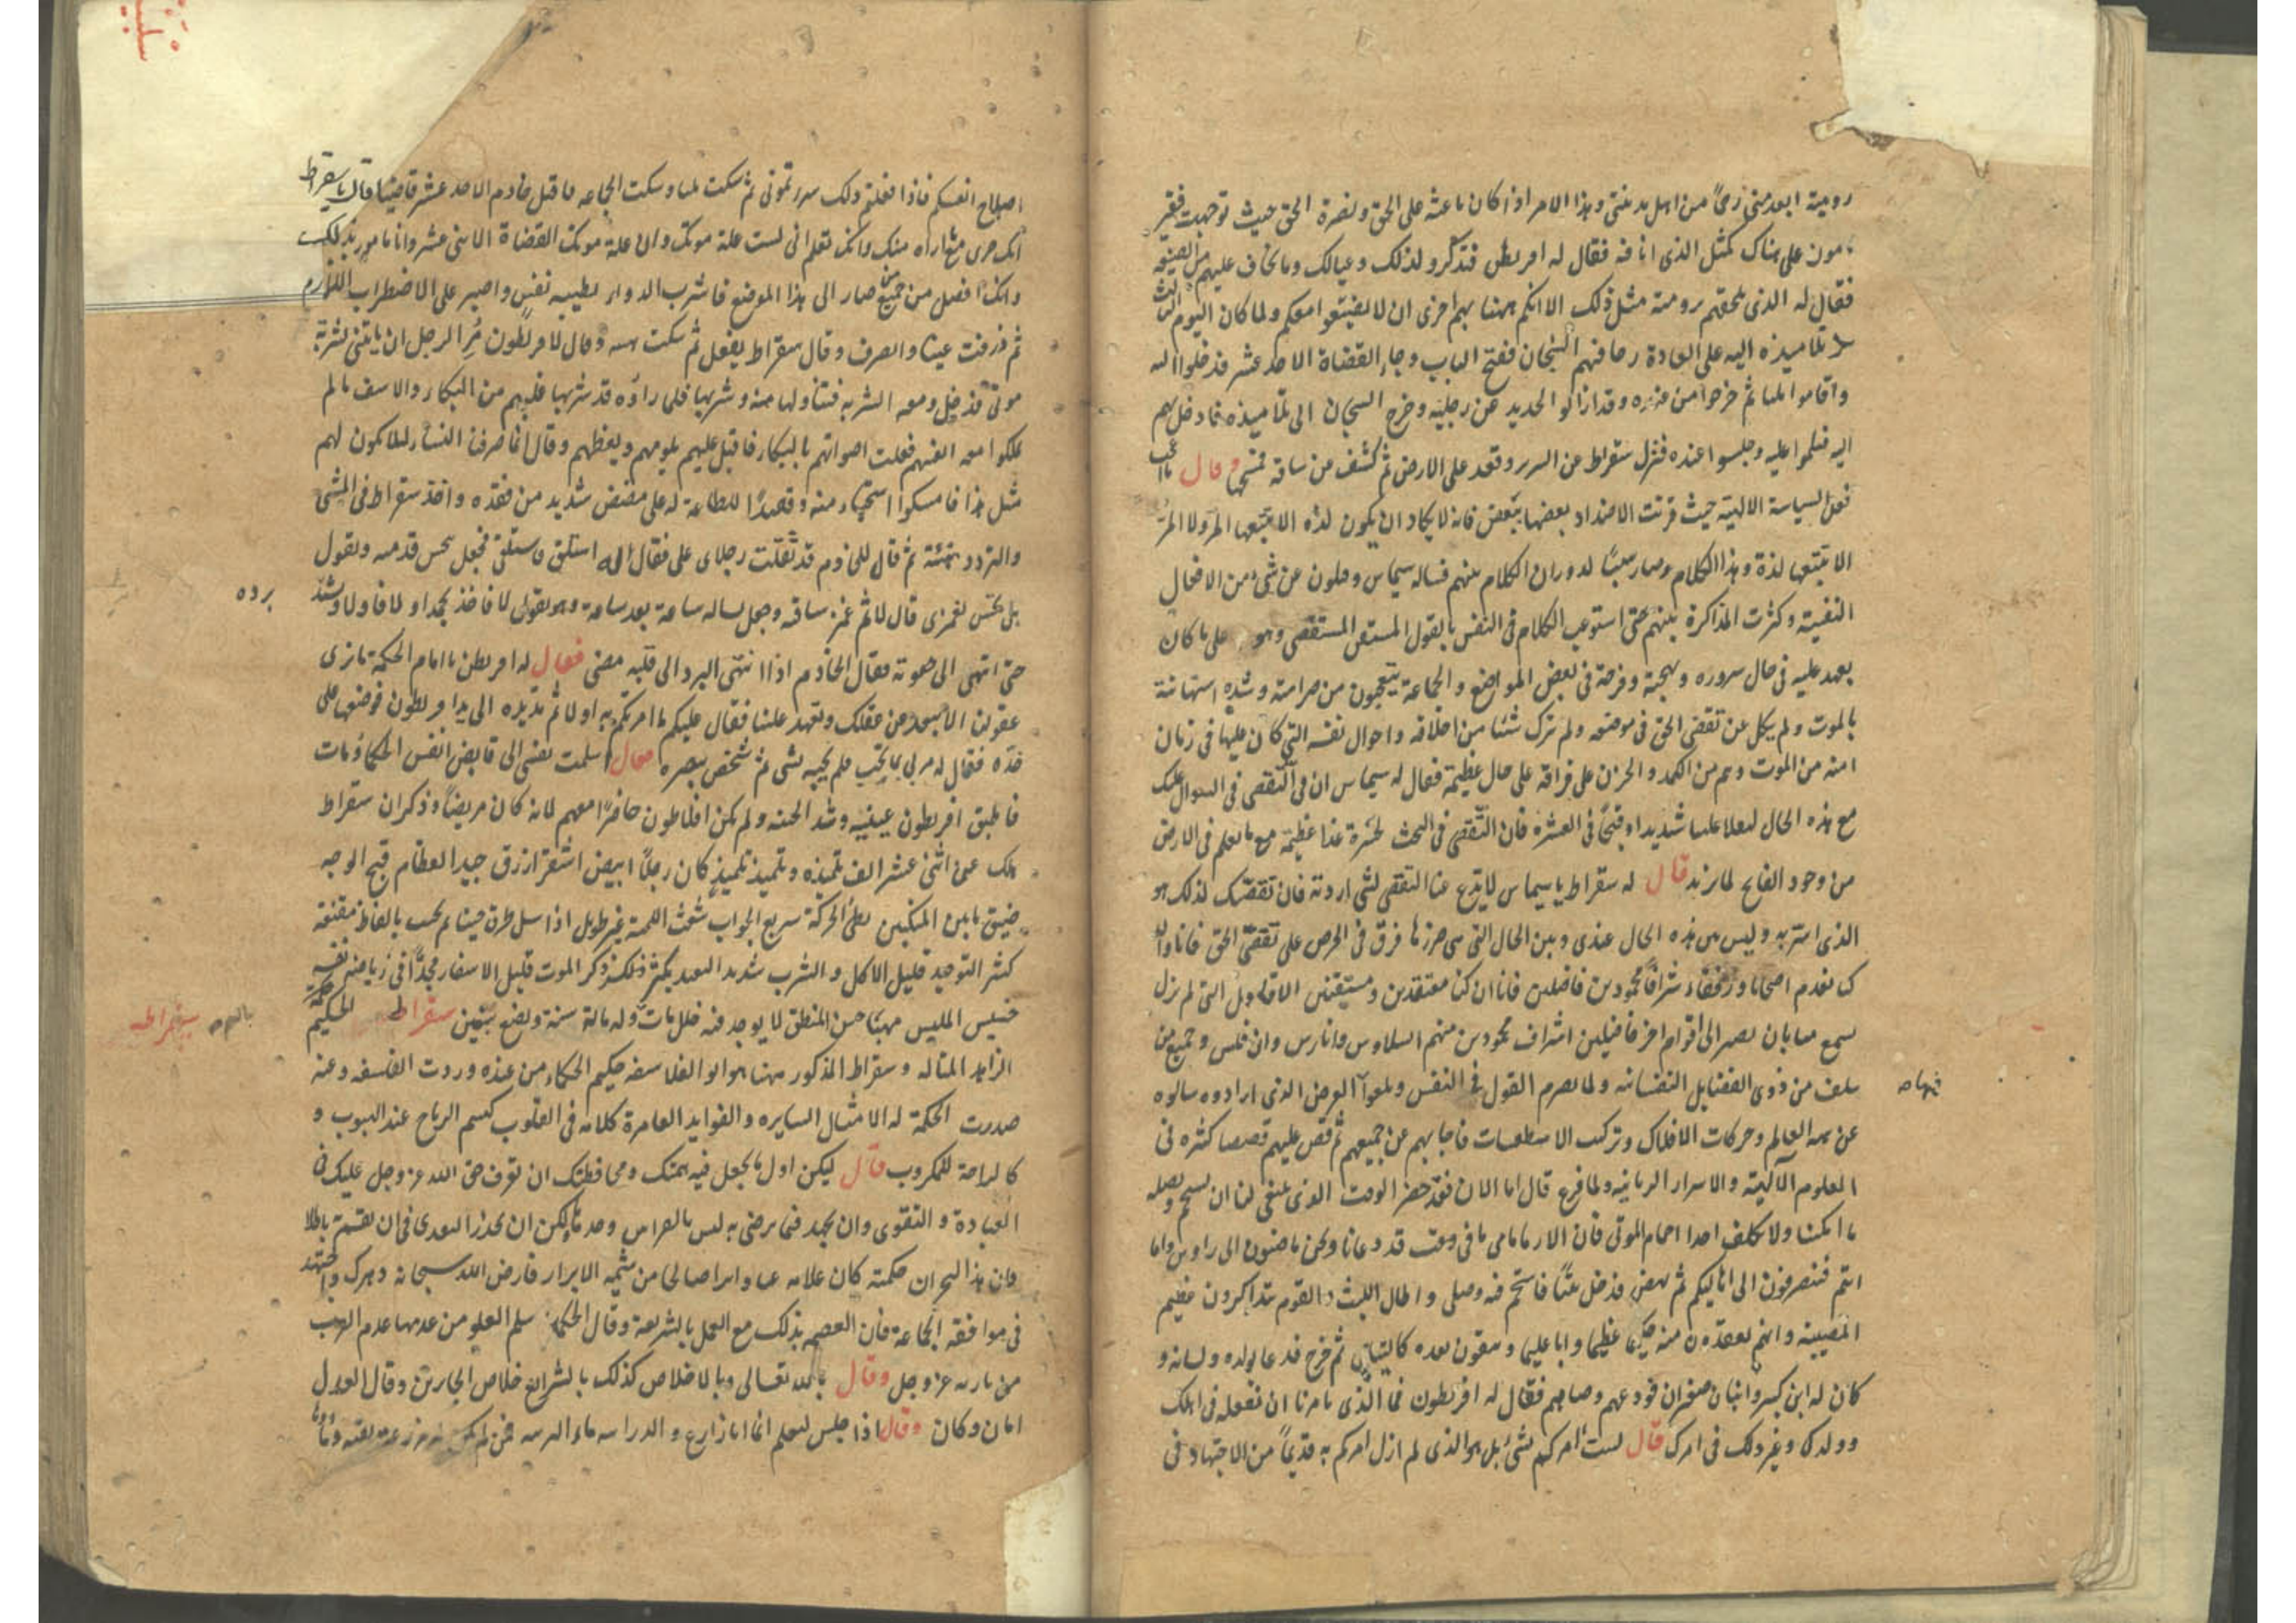 رومية ابعد مني رحماً من اهل مدينتي وهذا الامر اذا كان باعثه على الحق ونصرة الحق حيث توجهت فغير
مأمون على هناك كمثل الذي انا فيه فقال له اقريطن فتذكر ولدك وعيالك وما تخاف عليهم من الضيعة
فقال له الذي يلحقهم برومية مثل ذلك الا انكم ههنا بهم احرى ان لا يضيعوا معكم ولما كان اليوم الثالث
تلاميذه اليه على العادة السجان ففتح الباب وجاء القضاة الاحد عشر فدخلوا اليه
واقاموا مليا ثم خرجوا من عنده وقد ازالوا الحديد عن رجليه وخرج السجان الى تلاميذه فادخلهم
اليه فسلموا عليه وجلسوا عنده فنزل سقراط عن السرير وقعد على الارض ثم كشف عن ساقه فمسحها وقال ما اعجب
فعل السياسة الالهية حيث قرنت الاضداد بعضها ببعض فانه لا يكاد ان يكون لذة الا يتبعها الم ولا الم
الا يتبعها لذة وهذا الكلام صار سببا لدوران الكلام بينهم فساله سيماس وفلون عن شيء من الافعال
النفسية وكثرت المذاكرة بينهم حتى استوعب الكلام في النفس بالقول المتقن المستقصى وهو على ما كان
يعهد عليه في حال سروره وبهجته وفرحه في بعض المواضع والجماعة يتعجبون من صرامته وشدة استهانته
بالموت ولم يكل عن تقصي الحق في موضعه ولم يترك شيئا من اخلاقه واحوال نفسه التي كان عليها في زمان
امنه من الموت وهم من الكمد والحزن على فراقه على حال عظيمة فقال له سيماس ان في التقصي في السوال عليك
مع هذه الحال لثقلا علينا شديدا وقبحا في العشرة فان التقصي في البحث لحسرة غدا عظيمة مع ما نعلم في الارض
من وجود الفاتح لما نريد قال له سقراط يا سيماس لا تدع عنا التقصي لشيء اردته فان تقصيك لذلك هو
الذي اسر به وليس بين هذه الحال عندي وبين الحال التي هي ضدها فرق في الحرص على تقصي الحق فانا وان
كنا نعدم اصحابا ورفقاء اشرافا محمودين فاضلين فانا ان كنا معتقدين ومستيقنين الاقاويل التي لم نزل
نسمع منا بان نصير الى اقوام اخر فاضلين اشراف محمودين منهم السلاوس وانارس وان فلس وجميع من
سلف من ذوي الفضايل النفسانية ولما تصرم القول في النفس وبلغوا الغرض الذي ارادوه سالوه
عن هيئة العالم وحركات الافلاك وتركيب الاسطقسات فاجابهم عن جميعهم ثم قص عليهم قصصا كثيرة في
العلوم الآلهية والاسرار الربانية ولما فرغ قال اما الان فقد حضر الوقت الذي ينبغي لنا ان نستحم ونصلي
ما امكننا ولا نكلف احدا احمام الموتى فان قد دعانا ونحن ماضون الى زاوس واما
انتم فتنصرفون الى اهاليكم ثم نهض فدخل بيتا فاستحم فيه وصلى واطال اللبث والقوم يتذاكرون عظيم
المصيبة وانهم يفقدون منه حكيما عظيما وابا عليما ويبقون بعده كاليتامى ثم خرج فدعا بولده ونسائه و
كان له ابن كبير وابنان صغيران فودعهم وصاهم فقال له اقريطون فما الذي تامرنا ان نفعله في اهلك
وولدك وغير ذلك في امرك قال لست آمركم بشيء بل هو الذي لم ازل آمركم به قديماً من الاجتهاد في
اصلاح انفسكم فاذا فعلتم ذلك سررتموني ثم سكت مليا وسكت الجماعة فاقبل خادم الاحد عشر قاضيا قال يا سقراط
انك جرى مع ما اراه منك وانك تعلم اني لست علة موتك وان علة موتك القضاة الاحد عشر وانا مامور بذلك
وانك افضل من جميع من صار الى هذا الموضع فاشرب الدواء بطيبة نفس واصبر على الاضطراب اللازم
ثم ذرفت عيناه وانصرف وقال سقراط يفعل ثم سكت هنيهة وقال لاقريطون مر الرجل ان ياتيني بشربة
موتي فدخل ومعه الشربة فتناولها منه وشربها فلما راوه قد شربها غلبهم من البكاء والاسف ما لم
يملكوا معه انفسهم فعلت اصواتهم بالبكاء فاقبل عليهم يلومهم ويعظهم وقال انما صرفنا النساء لئلا يكون لهم
مثل هذا فامسكوا استحياء منه وقصدا للطاعة له على مضض شديد من فقده واخذ سقراط في المشي
والتردد هنيئة ثم قال للخادم قد ثقلت رجلاي علي فقال له استلق فاستلقى فجعل يجس قدميه ويقول
هل تحس لغمزي قال لا ثم غمز ساقه وجعل يساله ساعة بعد ساعة وهو يقول لا فاخذ يجمد اولا فاولا ويشتد برده
حتى انتهى الى حقوته فقال الخادم اذا انتهى البرد الى قلبه مضى فقال له اقريطن يا امام الحكمة ما نرى
عقولنا الا تبعد من عقلك وتعهد علينا فقال عليكم ما امرتكم به اولا ثم مد يده الى يد اقريطون فوضعها على
خده فقال له مرني بما تحب فلم يجبه بشيء ثم شخص ببصره فقال اسلمت نفسي الى قابض انفس الحكماء ومات
فاطبق اقريطون عينيه وشد الحيه ولم يكن افلاطون حاضرا معهم لانه كان مريضا وذكر ان سقراط
هلك عن اثني عشر الف تلميذ وتلميذ تلميذ كان رجلا ابيض اشقر ازرق جيد العظام قبيح الوجه
ضيق ما بين المنكبين بطئ الحركة سريع الجواب شعث اللحية غير طويل اذا سئل اطرق حينا ثم يجيب بالفاظ مقنعة
كثير التوحد قليل الاكل والشرب شديد التعبد يكثر ذكر الموت قليل الاسفار مجدا في رياضة نفسه
خسيس الملبس مهيبا حسن المنطق لا يوجد فيه خلل مات وله مائة سنة وبضع سنين سقراط الحكيم حكمة
الزاهد المتاله وسقراط المذكور ههنا هو ابو الفلاسفة حكيم الحكماء من عنده وردت الفلسفة وعنه
صدرت الحكمة له الامثال السايرة والفوايد العامرة كلامه في القلوب كنسيم الرياح عند الهبوب و
كالراحة للمكروب قال ليكن اول ما تجعل فيه همتك ومحافظتك ان تعرف حق الله عز وجل عليك في
العبادة والتقوى وان تجهد فيما يرضي به ليس بالقرابين وحدها لكن ان تحذر التعدي في ان تقسم باطلا
فان هذا البحران حكمته كان علامة صالحا من شيمة الابرار فارض الله سبحانه دهرك واجتهد
في موافقة الجماعة فان العصم بذلك مع العمل بالشريعة وقال الحكمة سلم العلو من عدمها عدم القرب
من باريه عز وجل وقال بالله تعالى وبالاخلاص كذلك بالشرائع خلاص الجايرين وقال العدل
امان وكان وقال اذا جلس لتعلم انما انا زارع والدراسة ماء